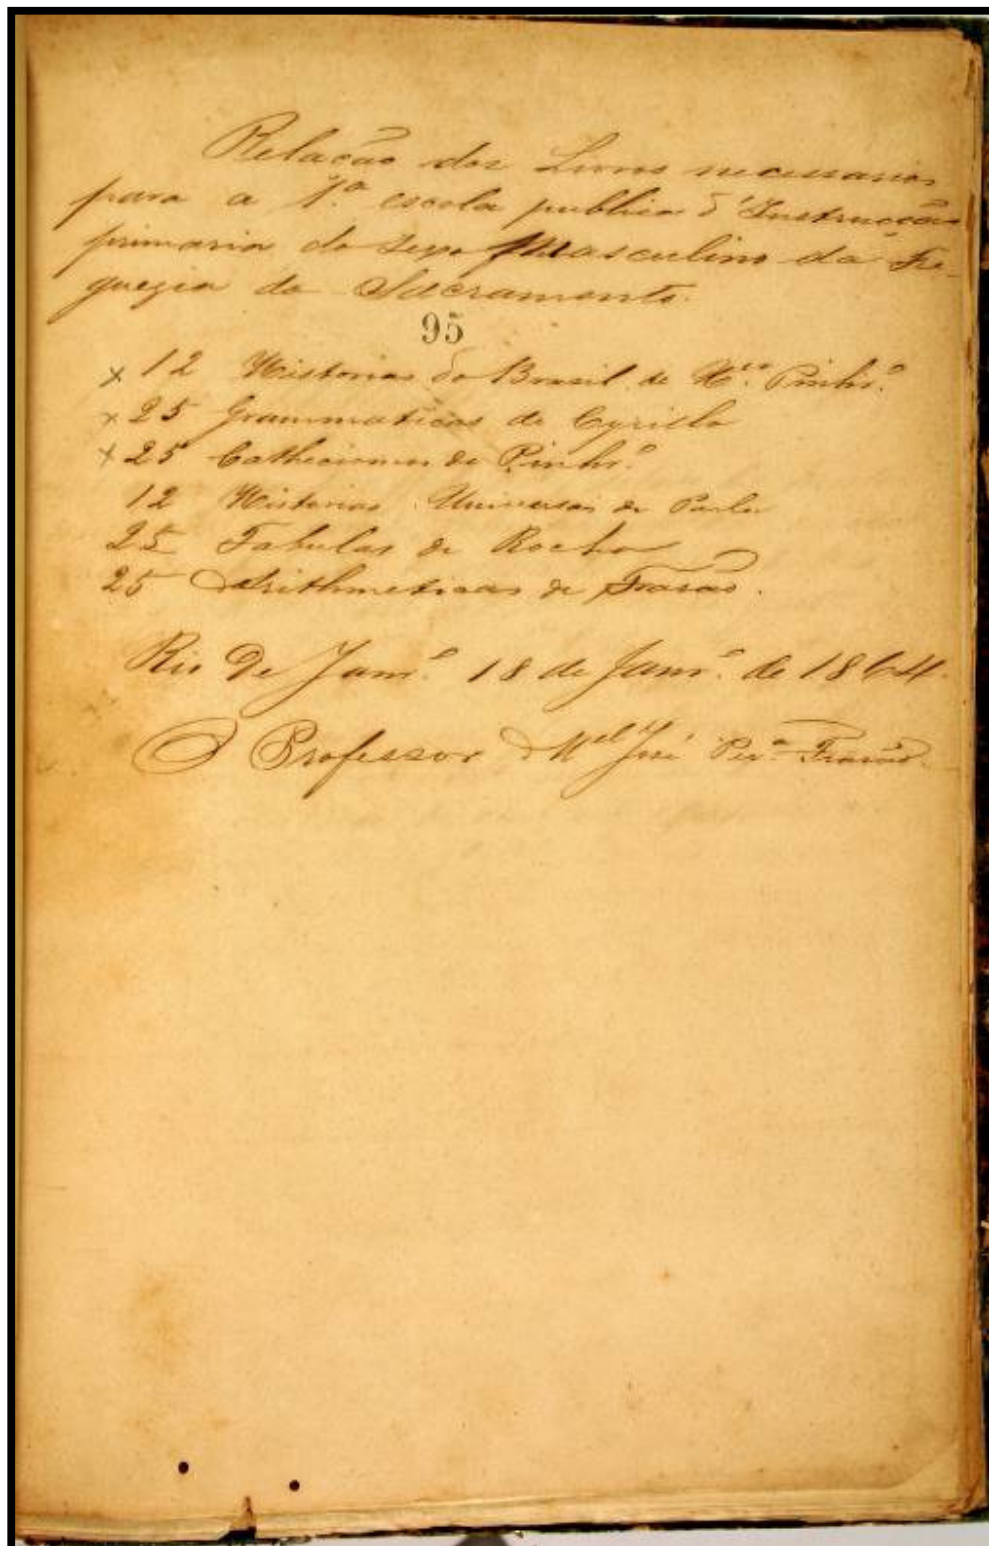 Relação dos Livros necessarios
para a 1ª escola publica d'Instrucção
primaria do sexo Masculino da Fre-
guezia do Sacramento.
95
x 12 Historias do Brasil de Pinhrº
x 25 Grammaticas de Cyrillo
x 25 Cathecismos de Pinhrº
12 Historias Universas de Parley
25 Fabulas de Rocha
25 Arithmeticas de Frasão.
Rio De Janrº 18 de Janrº de 1864.
O Professor Mel José Perª Frasão.